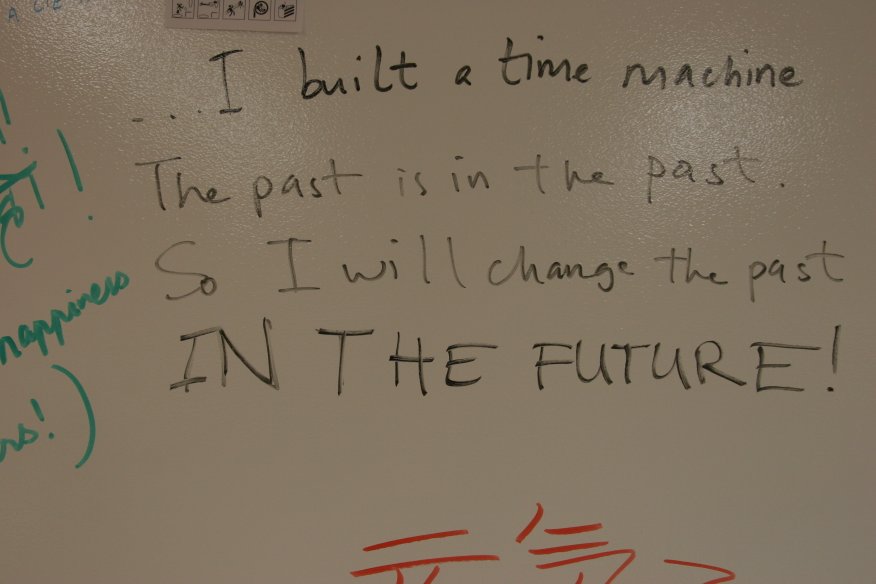 ...I built a time machine
The past is in the past.
So I will change the past
IN THE FUTURE!
happiness
元気